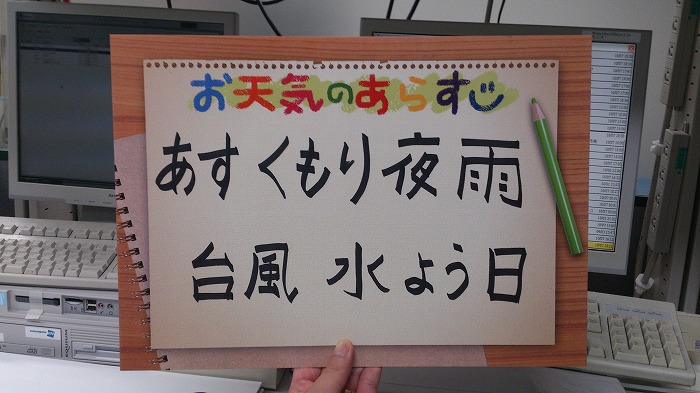 お天気のあらすじ
あす くもり夜雨
台風 水よう日